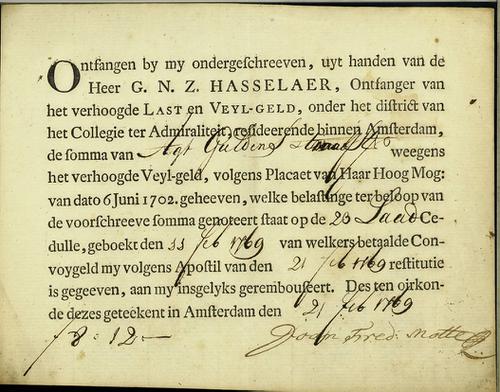 Ontfangen by my ondergeschreeven, uyt handen van de
Heer G. N. Z. HASSELAER, Ontfanger van
het verhoogde LAST en VEYL-GELD, onder het district van
het Collegie ter Admiraliteit, resideerende binnen Amsterdam,
de somma van Agt Guldens twaalf st weegens
het verhoogde Veyl-geld, volgens Placaet van Haar Hoog Mog:
van dato 6 Juni 1702. geheeven, welke belastinge ter beloop van
de voorschreeve somma genoteert staat op de 23 Laad Ce-
dulle, geboekt den 11 feb 1769 van welkers betaalde Con-
voygeld my volgens Apostil van den 21 feb 1769 restitutie
is gegeeven, aan my insgelyks gerembousseert. Des ten oirkon-
de dezes geteekent in Amsterdam den 21 feb 1769
f 8: 12:—
Joan Fred. Motte